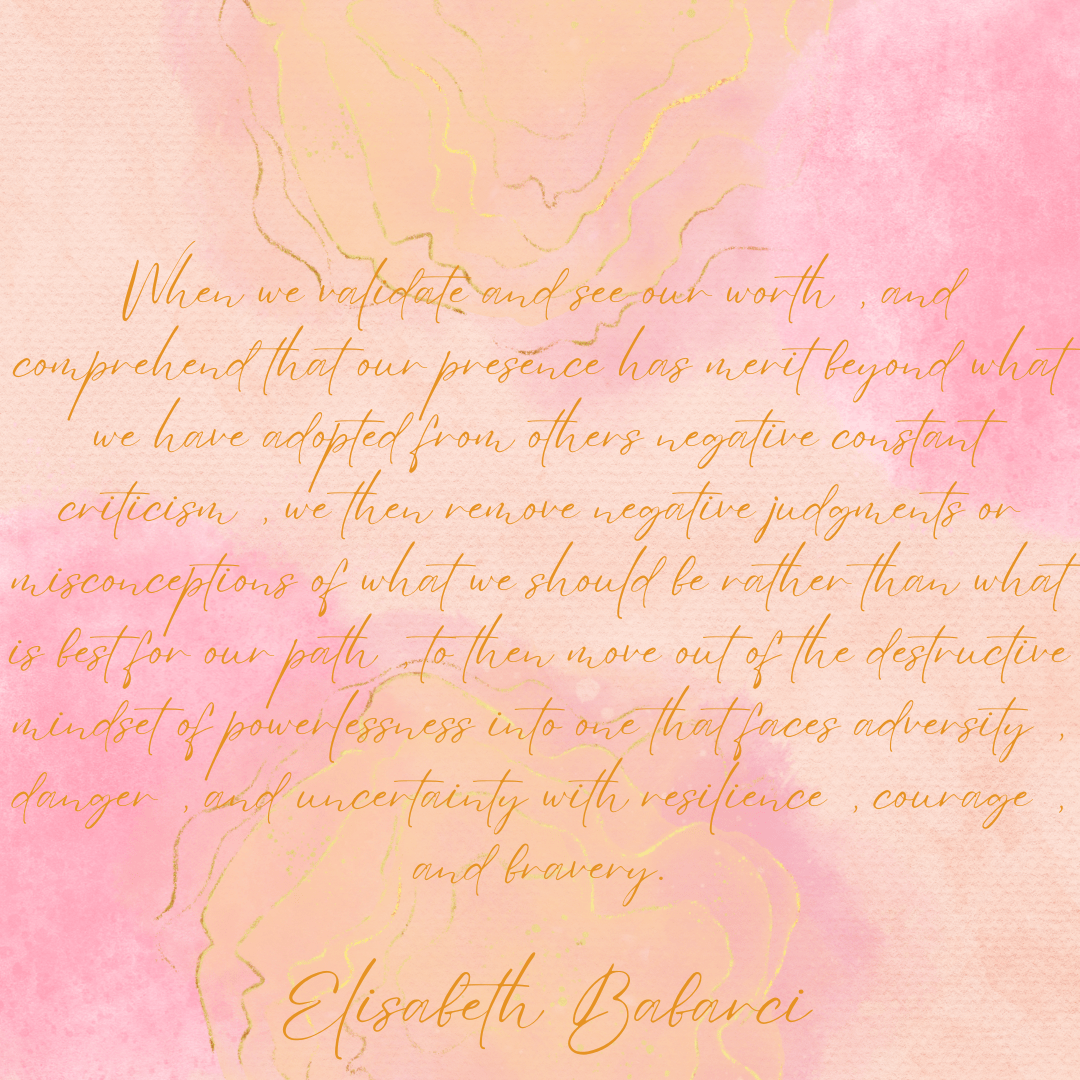 When we validate and see our worth , and
comprehend that our presence has merit beyond what
we have adopted from others negative constant
criticism , we then remove negative judgments or
misconceptions of what we should be rather than what
is best for our path , to then move out of the destructive
mindset of powerlessness into one that faces adversity ,
danger , and uncertainty with resilience , courage ,
and bravery.
Elisabeth Babarci